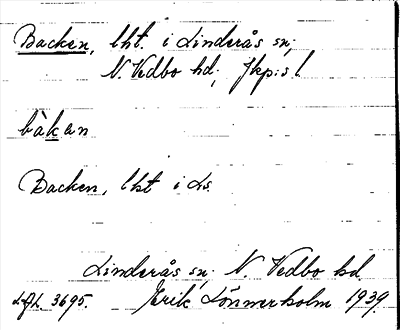 Backen, lht. i Linderås sn;
N. Vedbo hd; Jkp:s l
bàkan
Backen, lht i Ls.
Linderås sn; N. Vedbo hd
LAL 3695. Erik Lönnerholm 1939.